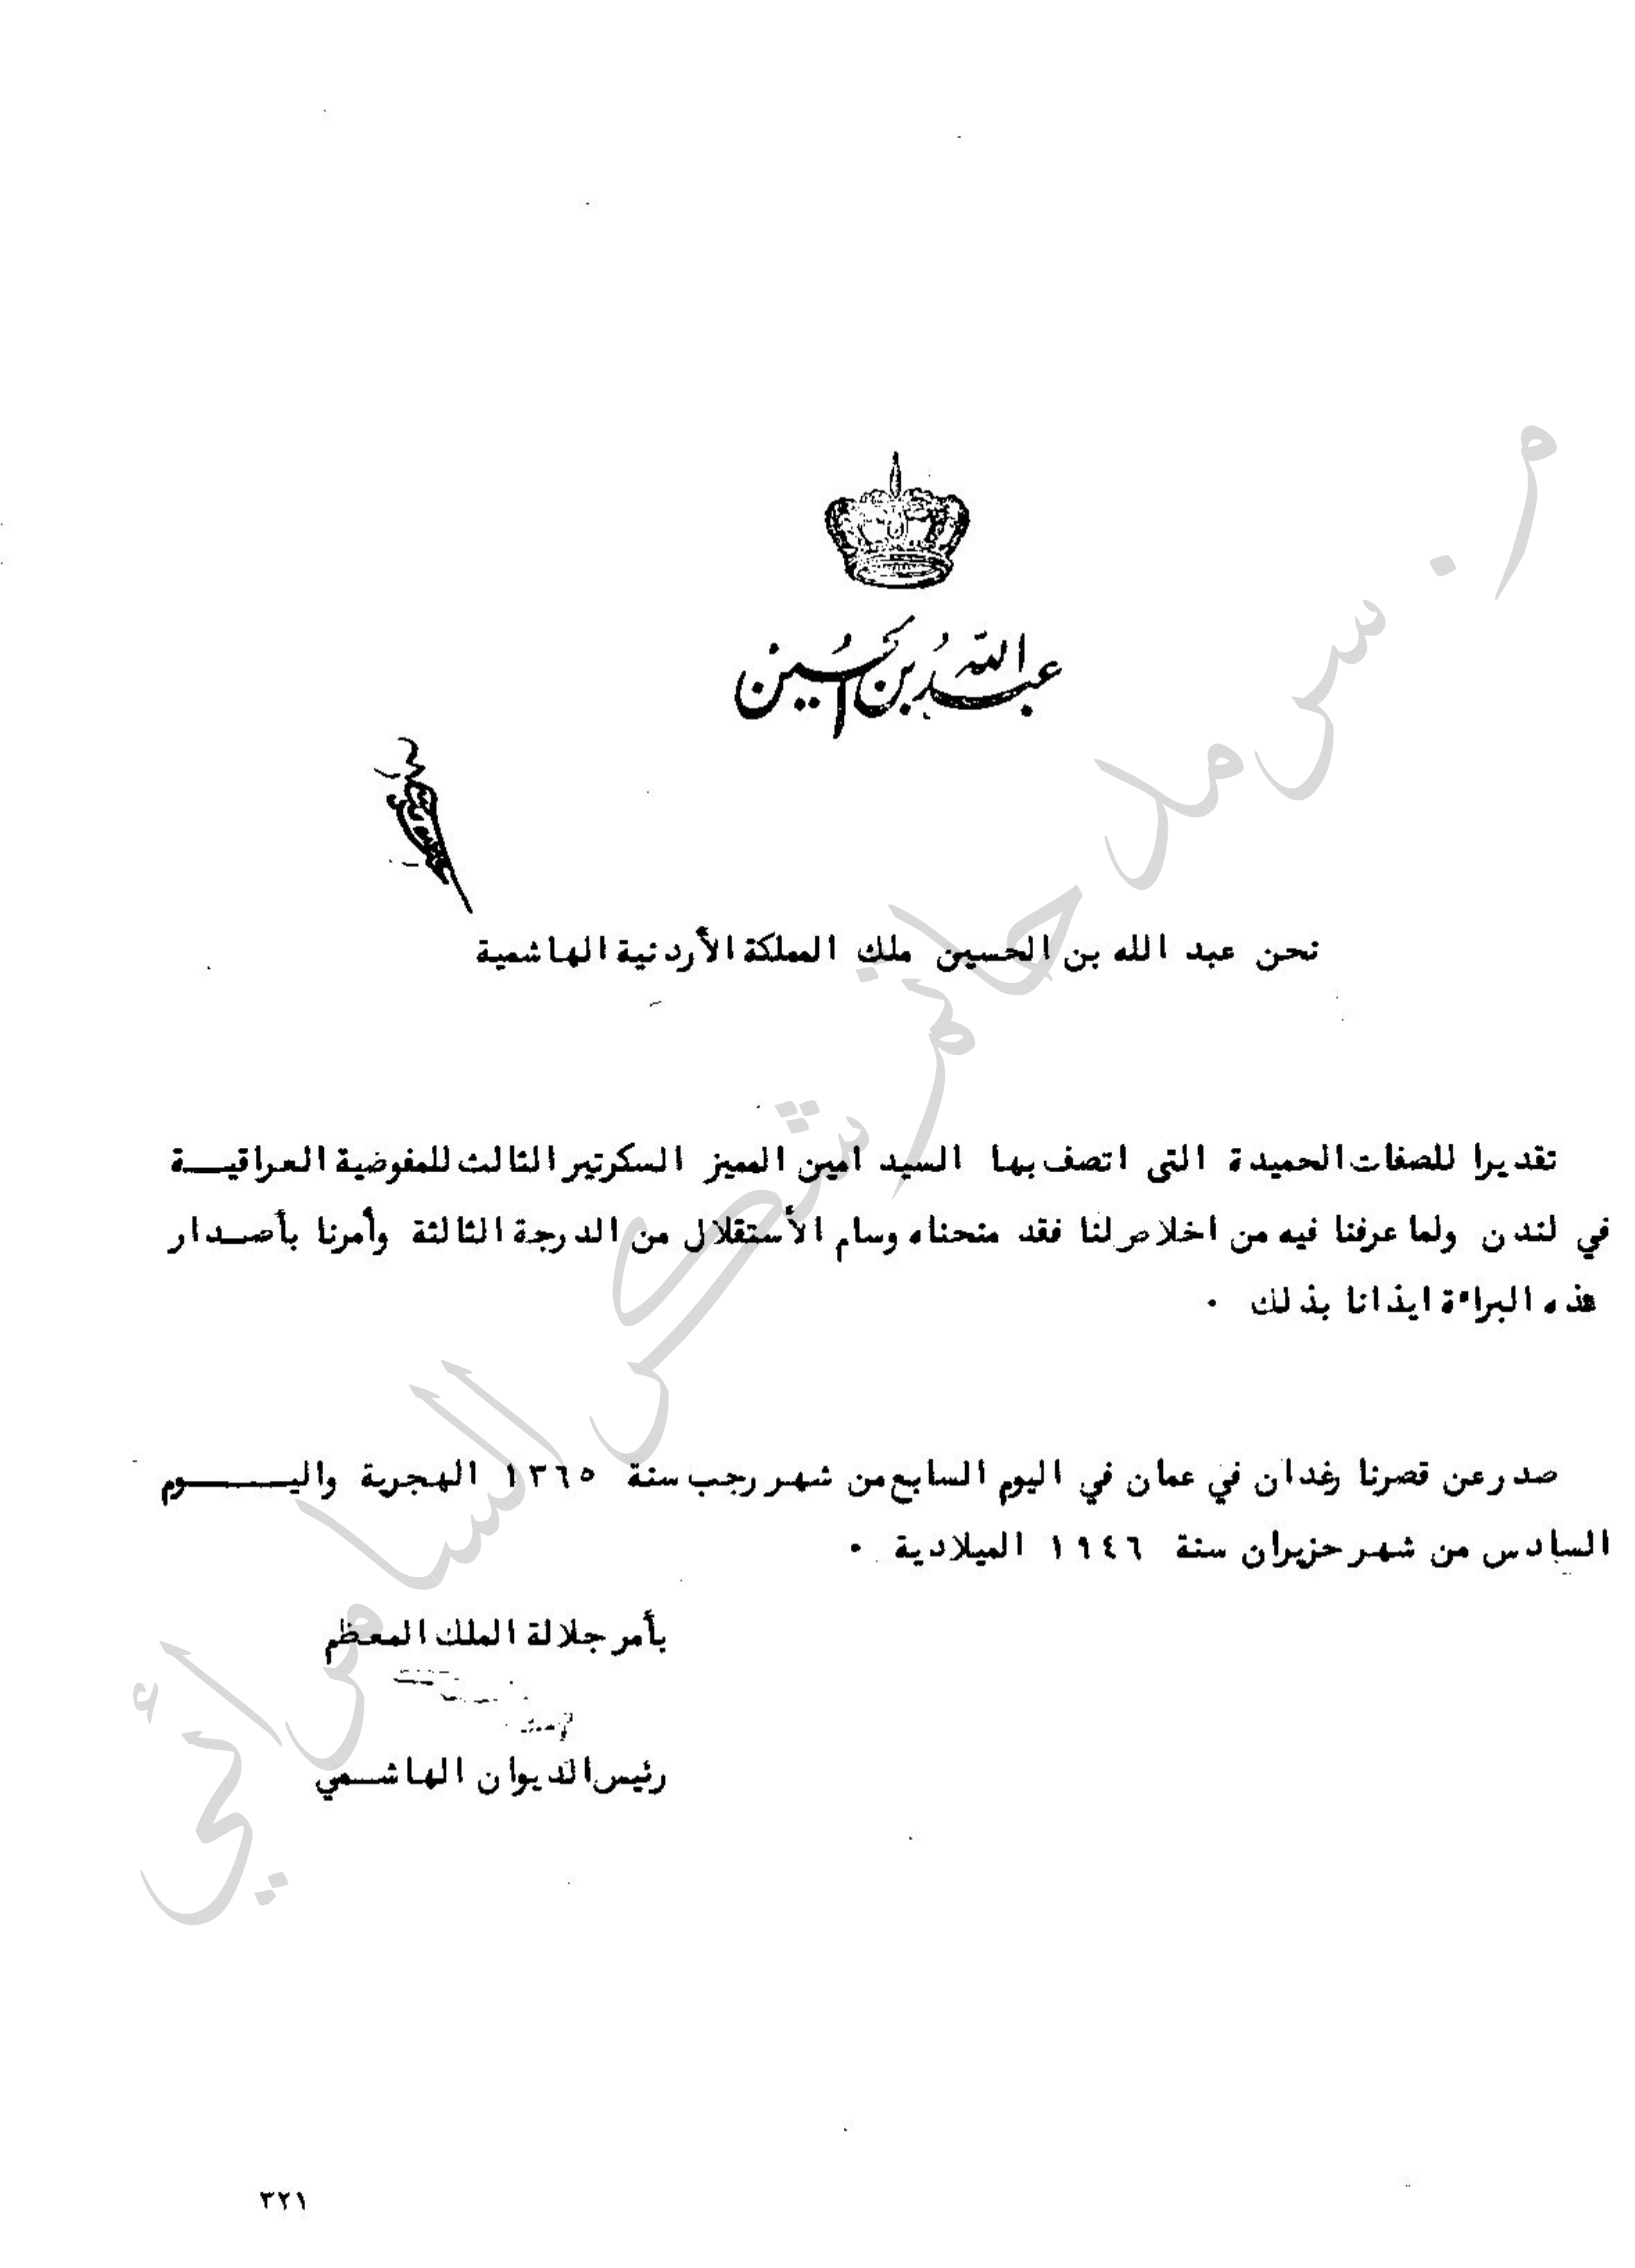 عبد الله بن الحسين
نحن عبد الله بن الحسين ملك المملكة الأردنية الهاشمية
تقديرا للصفات الحميدة التى اتصف بها السيد امين المميز السكرتير الثالث للمفوضية العراقيــة
في لندن ولما عرفنا فيه من اخلاص لنا فقد منحناه وسام الأستقلال من الدرجة الثالثة وأمرنا بأصـدار
هذه البراءة ايذانا بذلك ٠
صدر عن قصرنا رغدان في عمان في اليوم السابع من شهر رجب سنة ١٣٦٥ الهجرية واليـــــوم
السادس من شهر حزيران سنة ١٩٤٦ الميلادية ٠
بأمر جلالة الملك المعظم
رئيس الديوان الهاشـمي
٣٢١
م. سرمد حاتم شكر السامرائي